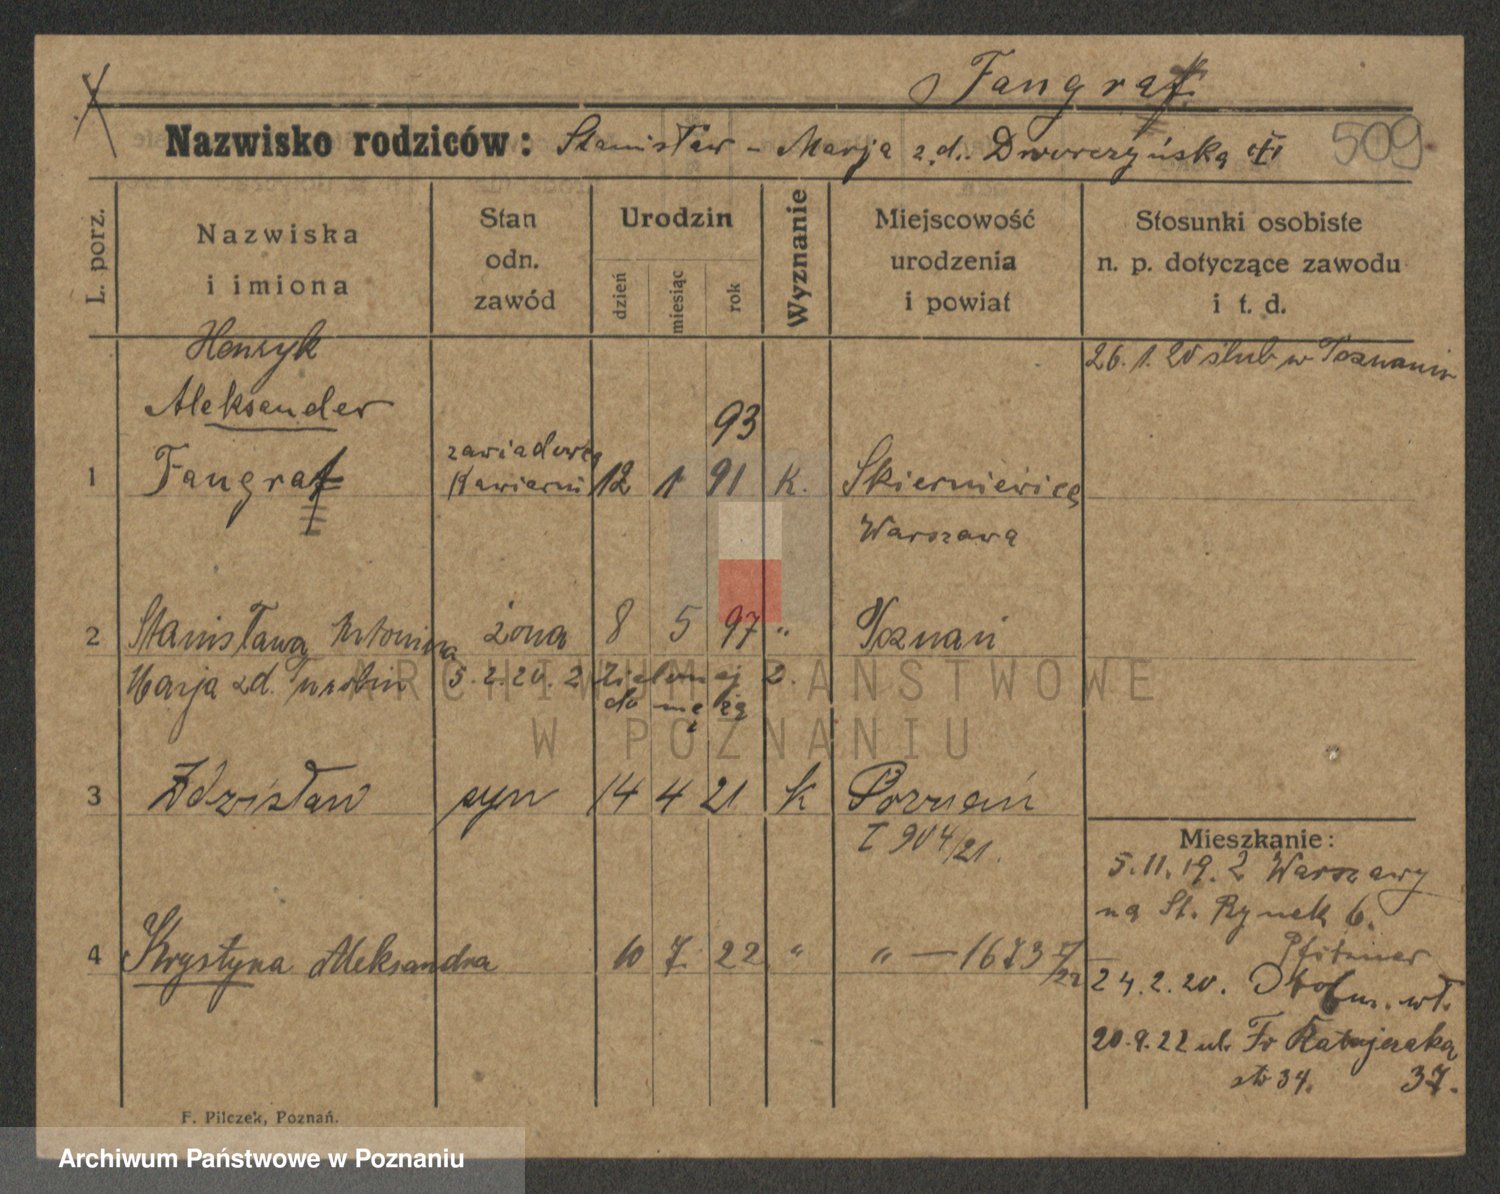 Fangraf
Nazwisko rodziców: Stanisław - Marja z.d. Dworczyńska
509
L. porz.
Nazwiska
i imiona
Stan
odn.
zawód
Urodzin
dzień
miesiąc
rok
Wyznanie
Miejscowość
urodzenia
i powiat
Stosunki osobiste
n. p. dotyczące zawodu
i t. d.
Henryk
26. 1. 20 ślub w Poznaniu
Aleksander
93
1 Fangraf zawiadowca Kawiarni 12 1 91 K. Skierniewice
Warszawa
2 Stanisława Antonina żona 8 5 97 " Poznań
Marja zd. 5. 2. 20. z Zielonej 2.
do męża
3 Zdzisław syn 14 4 21 k Poznań
I 904/21.
Mieszkanie:
5. 11. 19. z Warszawy
na St. Rynek 6.
4 Krystyna Aleksandra 10 7 22 " " — 1673 I/22
Pfitzner
24. 2. 20.
20. 9. 22 ul. Fr Ratajczaka
str 34. 37.
F. Pilczek, Poznań.
ARCHIWUM PAŃSTWOWE
W POZNANIU
Archiwum Państwowe w Poznaniu